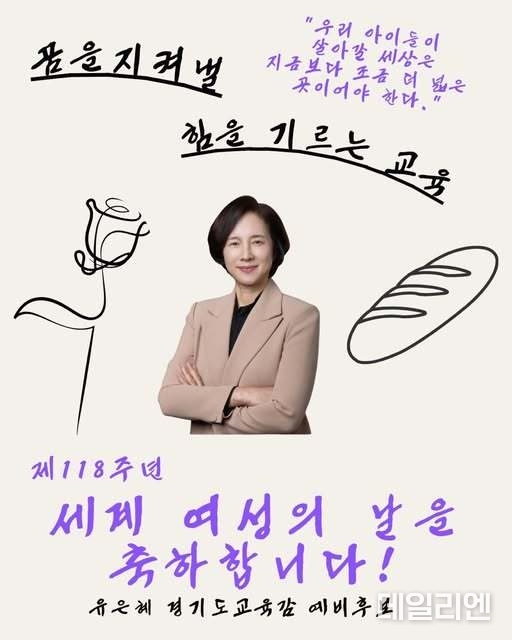 꿈을 지켜낼
"우리 아이들이
살아갈 세상은
지금보다 조금 더 넓은
곳이어야 한다."
힘을 기르는 교육
제118주년
세계 여성의 날을
축하합니다!
유은혜 경기도교육감 예비후보
데일리엔